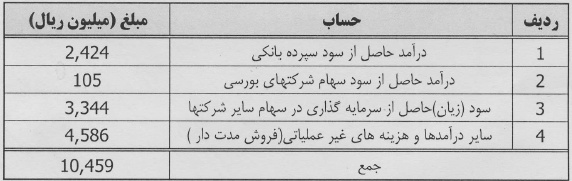 ردیف حساب مبلغ (میلیون ریال)
1 درآمد حاصل از سود سپرده بانکی 2,424
2 درآمد حاصل از سود سهام شرکتهای بورسی 105
3 سود (زیان)حاصل از سرمایه گذاری در سهام سایر شرکتها 3,344
4 سایر درآمدها و هزینه های غیر عملیاتی(فروش مدت دار ) 4,586
جمع 10,459